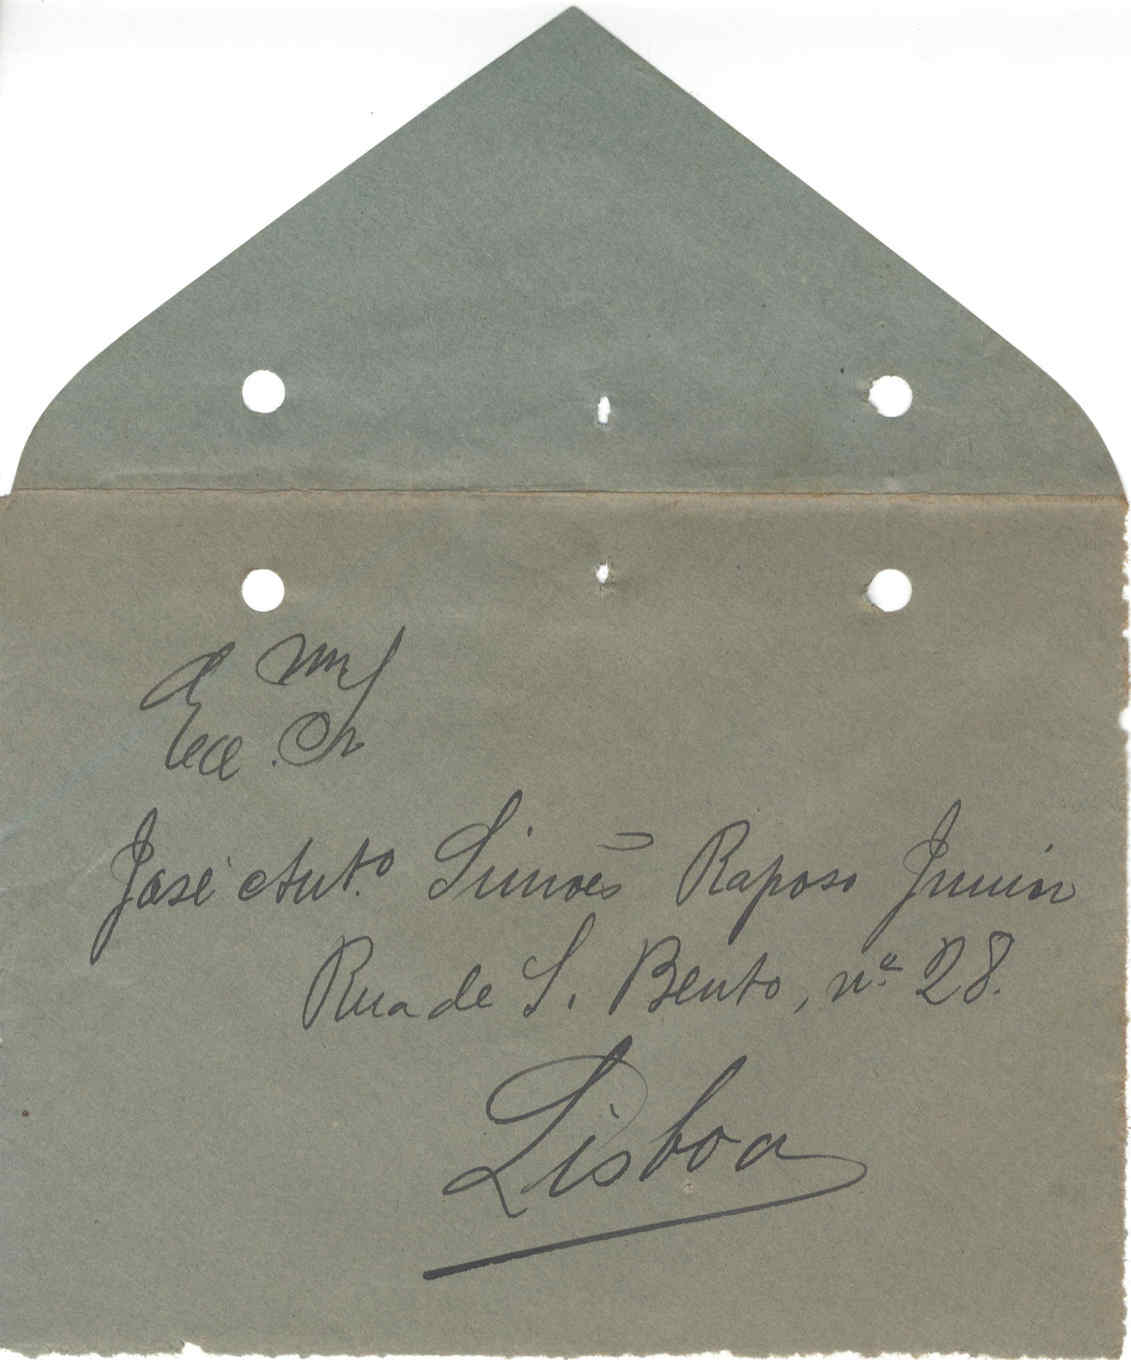 José Ant.º Simões Raposo Junior
Rua de S. Bento, nº 28.
Lisboa